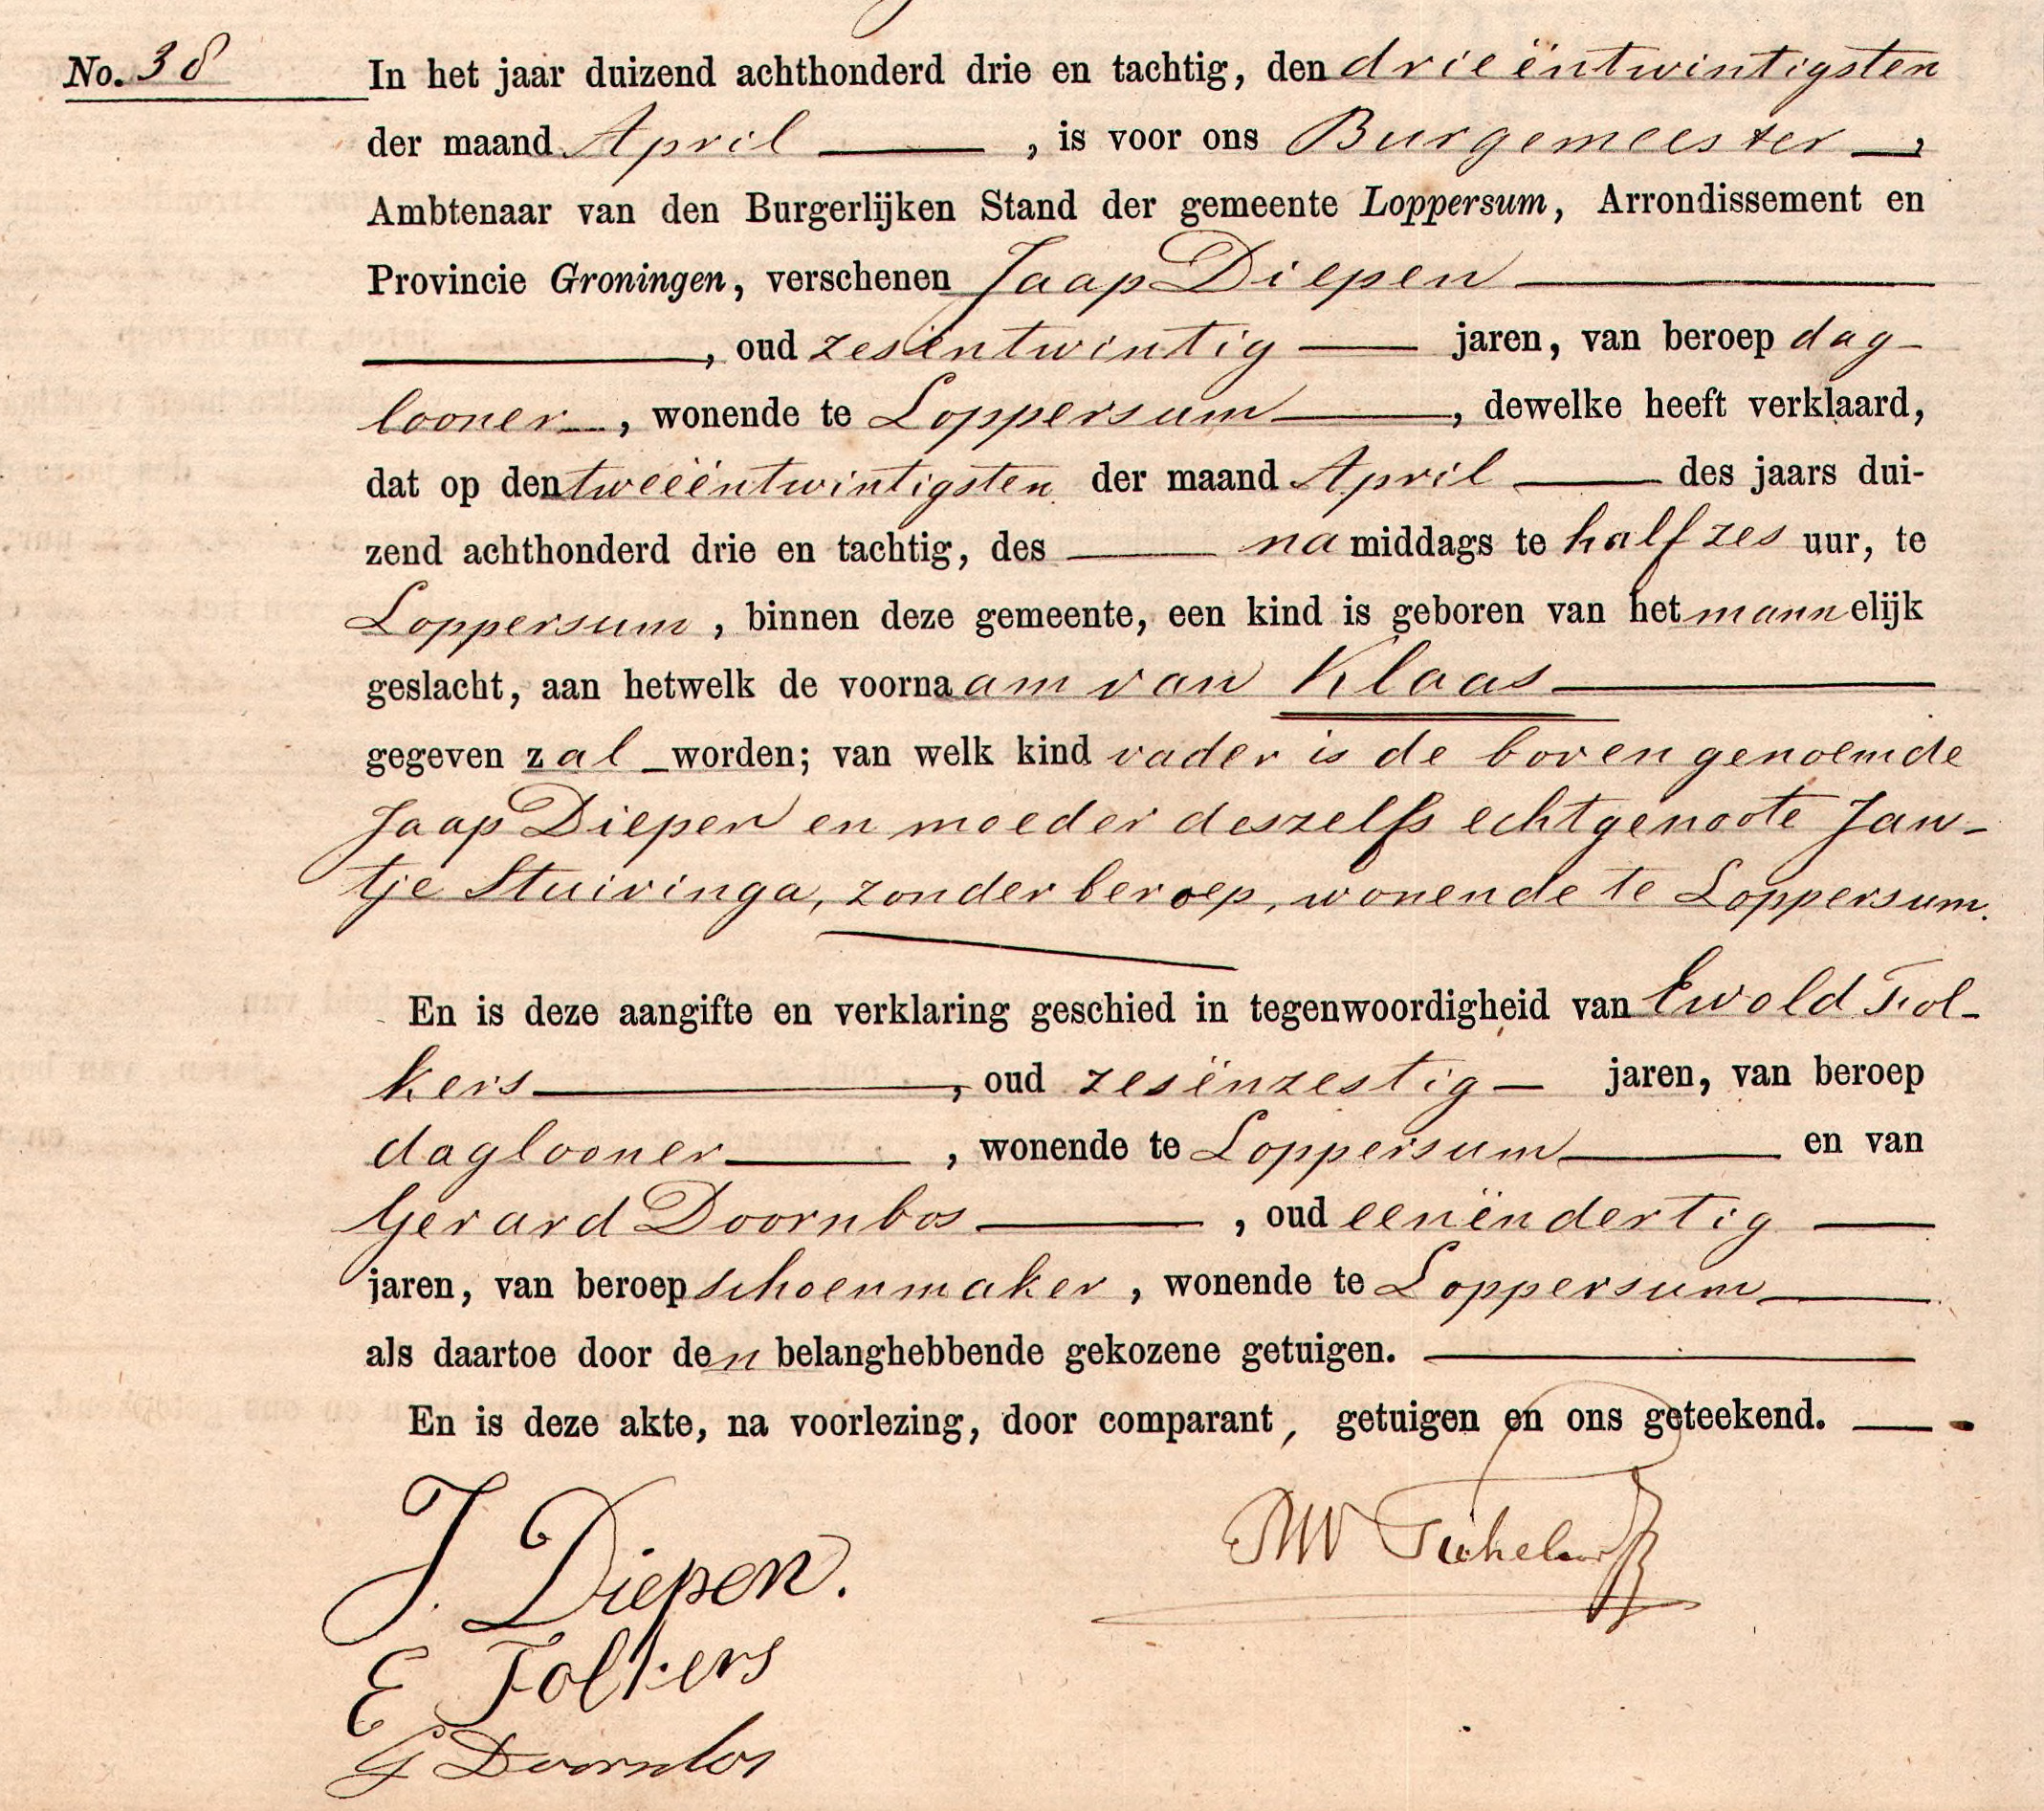 No. 38
In het jaar duizend achthonderd drie en tachtig, den drieëntwintigsten
der maand April , is voor ons Burgemeester ,
Ambtenaar van den Burgerlijken Stand der gemeente Loppersum, Arrondissement en
Provincie Groningen, verschenen Jaap Diepen
, oud zesëntwintig jaren, van beroep dag-
looner , wonende te Loppersum , dewelke heeft verklaard,
dat op den tweeëntwintigsten der maand April des jaars dui-
zend achthonderd drie en tachtig, des namiddags te half zes uur, te
Loppersum , binnen deze gemeente, een kind is geboren van het mannelijk
geslacht, aan hetwelk de voornaam van Klaas
gegeven zal worden; van welk kind vader is de bovengenoemde
Jaap Diepen en moeder deszelfs echtgenoote Jan-
tje Stuivinga, zonder beroep, wonende te Loppersum.
En is deze aangifte en verklaring geschied in tegenwoordigheid van Ewold Fol-
kers , oud zesënzestig jaren, van beroep
daglooner , wonende te Loppersum en van
Gerard Doornbos , oud eenëndertig
jaren, van beroep schoenmaker , wonende te Loppersum
als daartoe door den belanghebbende gekozene getuigen.
En is deze akte, na voorlezing, door comparant, getuigen en ons geteekend.
J. Diepen.
E Folkers
G Doornbos